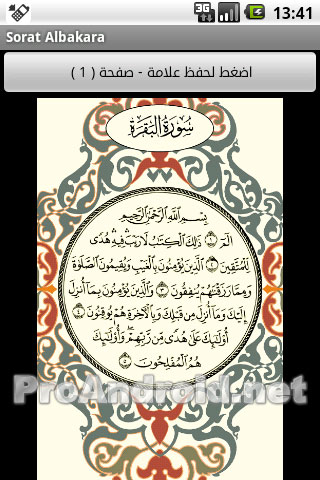 3G
13:41
Sorat Albakara
اضغط لحفظ علامة - صفحة ( 1 )
سُورَةُ البَقَرَةِ
بِسْمِ ٱللَّهِ ٱلرَّحْمَٰنِ ٱلرَّحِيمِ
الٓمٓ ١ ذَٰلِكَ ٱلْكِتَٰبُ لَا رَيْبَ ۛ فِيهِ ۛ هُدًى
لِّلْمُتَّقِينَ ٢ ٱلَّذِينَ يُؤْمِنُونَ بِٱلْغَيْبِ وَيُقِيمُونَ ٱلصَّلَوٰةَ
وَمِمَّا رَزَقْنَٰهُمْ يُنفِقُونَ ٣ وَٱلَّذِينَ يُؤْمِنُونَ بِمَآ أُنزِلَ
إِلَيْكَ وَمَآ أُنزِلَ مِن قَبْلِكَ وَبِٱلْءَاخِرَةِ هُمْ يُوقِنُونَ ٤
أُو۟لَٰٓئِكَ عَلَىٰ هُدًى مِّن رَّبِّهِمْ ۖ وَأُو۟لَٰٓئِكَ
هُمُ ٱلْمُفْلِحُونَ ٥
ProAndroid.net